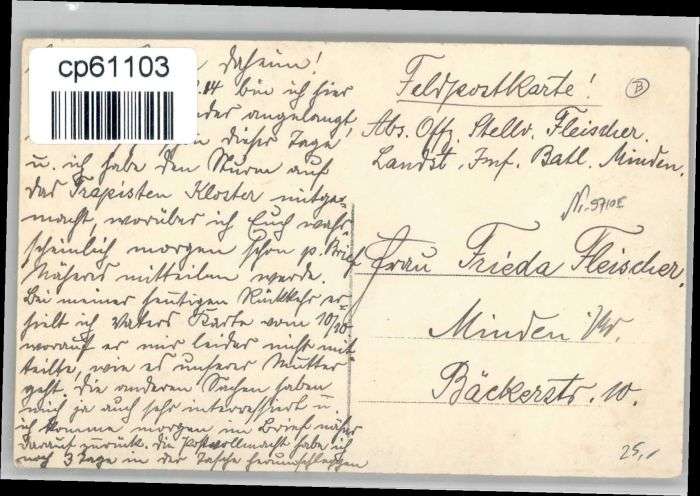 cp61103
daheim!
14 bin ich hier
wieder angelangt,
dieser Tage
u. ich habe den Sturm auf
das Trapisten Kloster mitge-
macht, worüber ich Euch wahr-
scheinlich morgen schon p. Brief
Näheres mitteilen werde.
Bei meiner heutigen Rückkehr er-
hielt ich Vaters Karte vom 10/10
worauf er mir leider nicht mit-
teilte, wie es unserer Mutter
geht. Die anderen Sachen haben
mich ja auch sehr interessiert u.
ich komme morgen im Brief näher
darauf zurück. Die Postvollmacht habe ich
noch 3 Tage in der Tasche herumschleppen
Feldpostkarte!
B
Abs. Off. Stellv. Fleischer.
Landst. Inf. Batl. Minden.
Frau Frieda Fleischer.
Minden i/W.
Bäckerstr. 10.
25,-